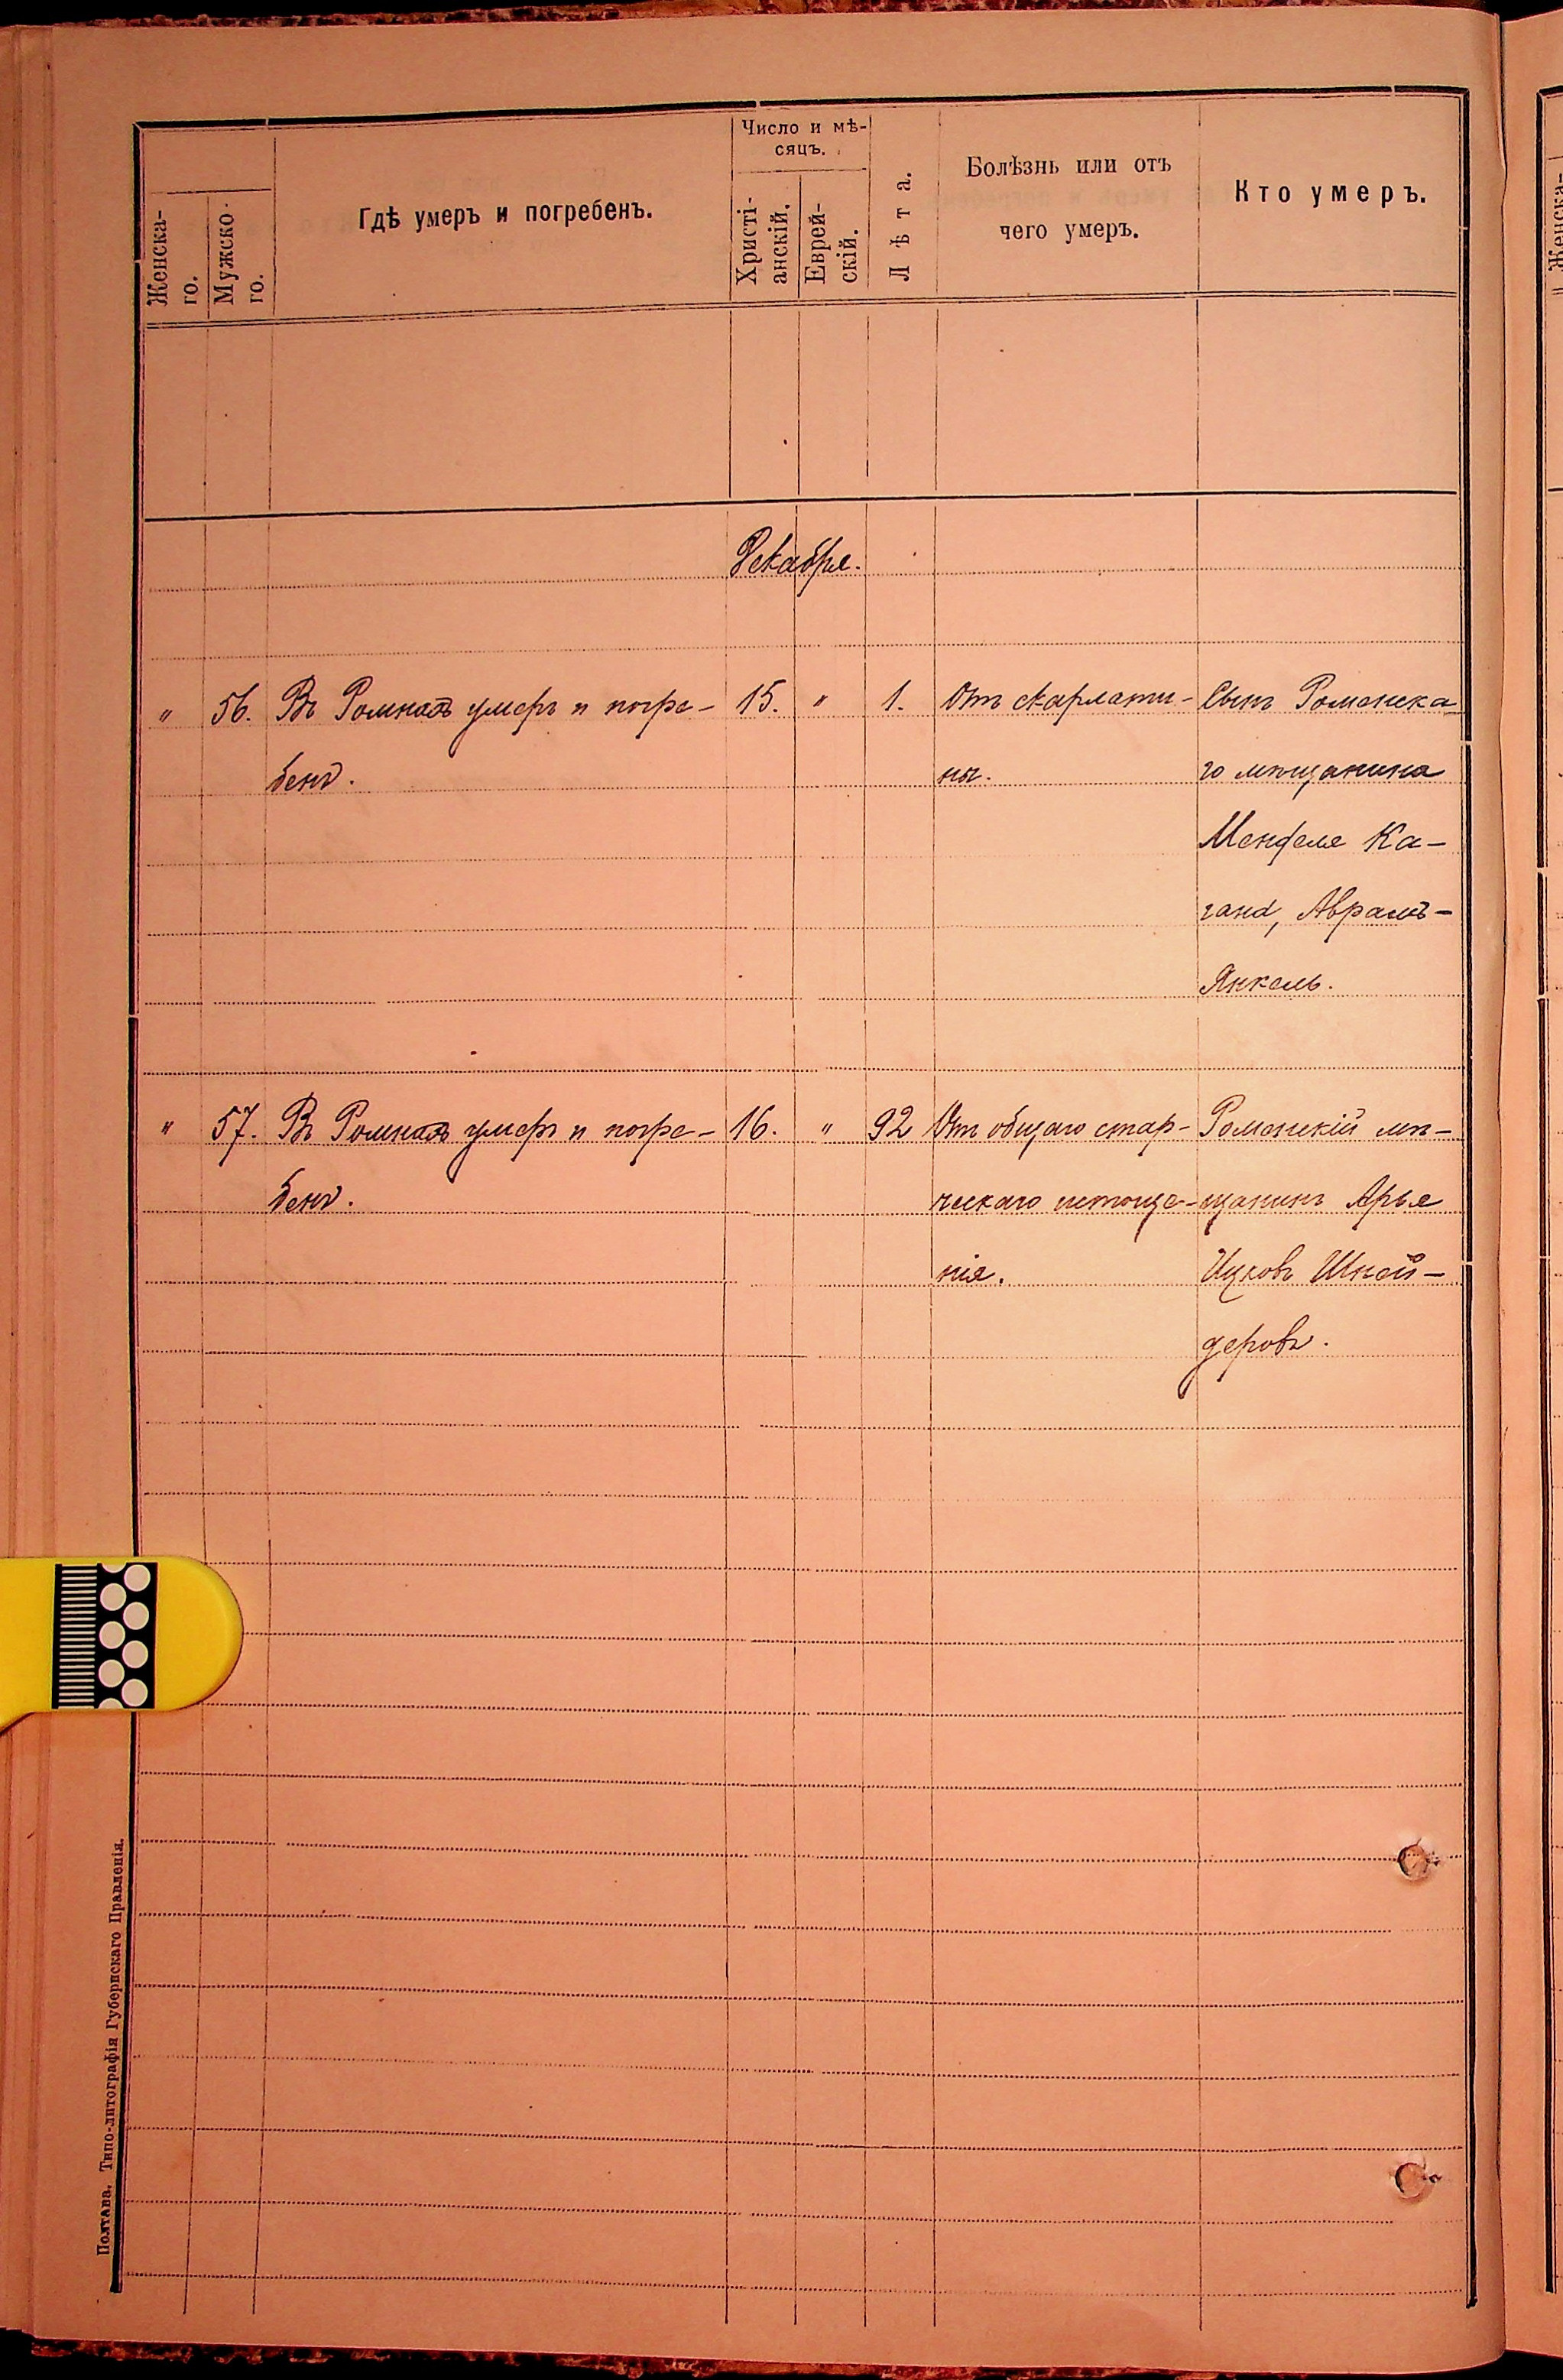 Женска-
го.
Мужско-
го.
Гдѣ умеръ и погребенъ.
Число и мѣ-
сяцъ.
Христі-
анскій.
Еврей-
скій.
Лѣта.
Болѣзнь или отъ
чего умеръ.
Кто умеръ.
Декабря.
" 56. Въ Ромнахъ умеръ и погре- 15. " 1. Отъ скарлати- Сынъ Роменска
бенъ. ны. го мѣщанина
Менделя Ка-
гана, Аврамъ-
Янкель.
" 57. Въ Ромнахъ умеръ и погре- 16. " 92 Отъ общаго стар- Роменскій мѣ-
бенъ. ческаго истоще- щанинъ Арья
нія. Ицковъ Шней-
деровъ.
Полтава. Типо-литографія Губернскаго Правленія.
Женска-